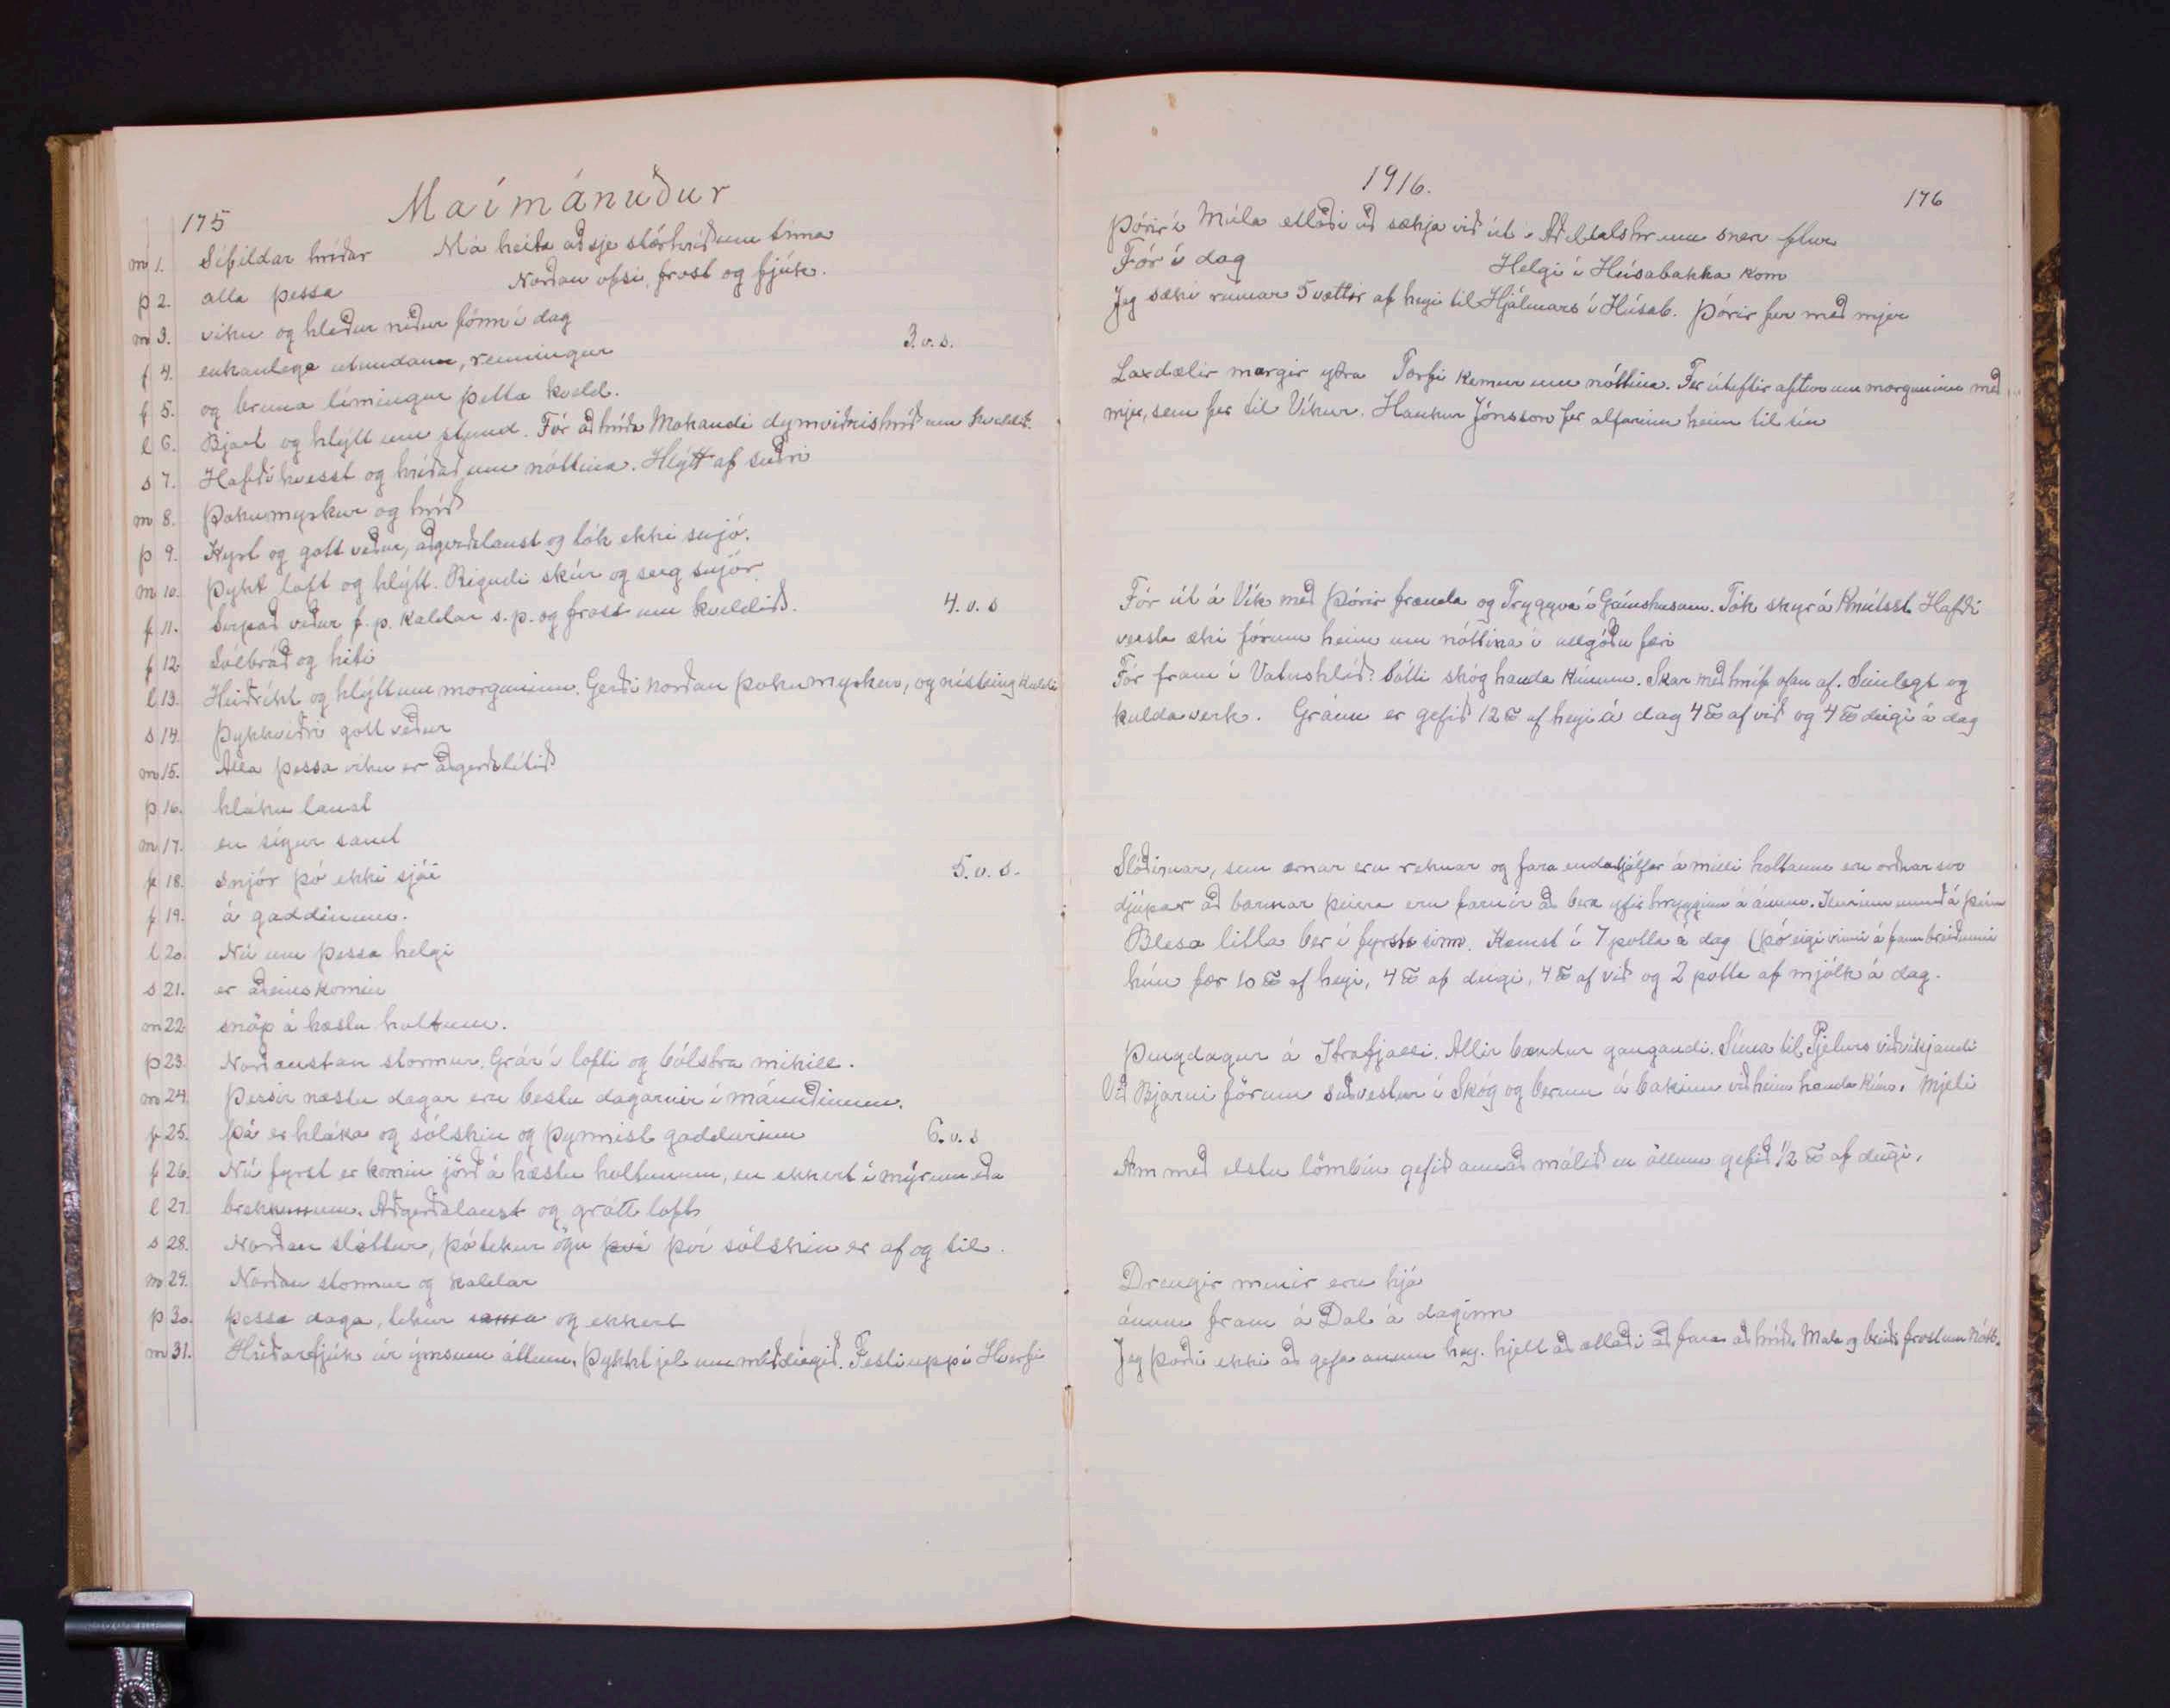 175
Maímánuður
m 1. Sífildar hríðar Má heita að sje stórhríðum tíma
þ 2. alla þessa Norðan ofsi, frost og fjúk.
m 3. viku og hleður niður fönn í dag
f 4. enkanlega utundann, renningur 3. v. s.
f 5. og bruna límingur þetta kveld.
l 6. Bjart og hlýtt um stund. Fór að hríða Mokandi dymviðrishríð um kveldið.
s 7. Hafði hvesst og hríðað um nóttina. Hlýtt af suðri
m 8. Þokumyrkur og hríð
þ 9. Kyrt og gott veður, aðgerðalaust og tók ekki snjó.
m 10. Þykt loft og hlýtt. Rigndi skúr og seig snjór.
f 11. veður f. p. Kaldar s. p. og frost um kveldið. 4. v. s
f 12. Sólbráð og hiti
l 13. Heiðríkt og hlýtt um morguninn. Gerði norðan þokumyrkur, og nístingskulda
s 14. Þykkviðri gott veður
m 15. Alla þessa viku er aðgerðalítið
þ 16. hláku laust
m 17. en sígur samt
f 18. snjór þó ekki sjái 5. v. s.
f 19. á gaddinum.
l 20. Nú um þessa helgi
s 21. er aðeins komin
m 22. snöp á hæstu holtum.
þ 23. Norðaustan stormur. Grár í lofti og bólstra mikill.
m 24. Þessir næstu dagar eru bestu dagarnir í mánuðinum.
f 25. Þá er hláka og sólskin og þynnist gaddurinn 6. v. s
f 26. Nú fyrst er komin jörð á hæstu holtunum, en ekkert í mýrum eða
l 27. brekkunum. Aðgerðalaust og grátt loft
s 28. Norðan sláttur, þó tekur ögn því sólskin er af og til.
m 29. Norðan stormur og kaldar
þ 30. þessa daga, tekur og ekkert
m 31. Hríðarfjúk úr ýmsum áttum. Þykkt jel um miðdegið. Festi uppí Hverfi
1916.
176
Þórir í Múla ætlaði að sækja við út í Aðaldalshraun snéri aftur
Fór í dag Helgi í Húsabakka kom
Jeg sæki rúmar 5 vættir af heyi til Hjálmars í Húsab. Þórir fer með mjer
Laxdælir margir ytra Torfi kemur um nóttina. Fer úteftir aftur um morguninn með
mjer, sem fer til Víkur. Haukur Jónsson fer alfarinn heim til sín
Fór út á Vík með Þórir frænda og Tryggva í Grímshúsum. Tók skyr á Hafði
versta æki fórum heim um nóttina í allgóðu færi
Fór fram í Vatnshlíð. Sótti skóg handa kúnum. Skar með hníf ofan af. Seinlegt og
kulda verk. Gránu er gefið 12 ℔ af heyi á dag 4 ℔ af við og 4 ℔ deigi á dag
Slóðirnar, sem ærnar eru reknar og fara endasjálfar á milli holtanna eru orðnar svo
djúpar að barmar þeirra eru farnir að bera yfir hrygginn á ánum.
Blesa litla ber í fyrsta sinn. Kemst í 7 potta á dag
hún fær 10 ℔ af heyi, 4 ℔ af deigi, 4 ℔ af við og 2 potta af mjólk á dag.
Þingdagur á Ytrafjalli. Allir bændur gangandi. Síma til viðvíkjandi
Við Bjarni förum suðvestur í Skóg og berum á bakinu við heim handa kúm. Mjeli
Ám með elstu lömbin gefið annað málið en öllum gefið 1/2 ℔ af deigi.
Drengir mínir eru hjá
ánum fram á Dal á daginn
Jeg þorði ekki að gefa ánum hey. hjelt að ætlaði að fara að hríða Mata og frost um Nótt.